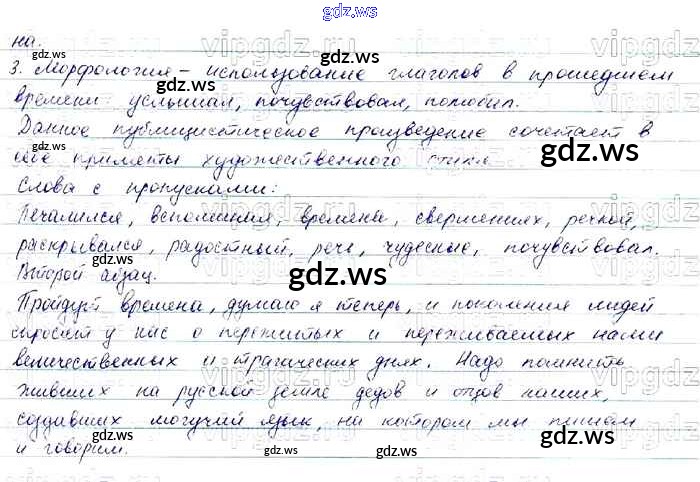 gdz.ws
на.
3. Морфология – использование глаголов в прошедшем
времени: услышал, почувствовал, полюбил.
Данное публицистическое произведение сочетает в
себе приметы художественного стиля.
Слова с пропусками:
Печалился, вспоминая, времена, свершениях, речной,
раскрывался, радостный, речь, чудесные, почувствовал.
Второй абзац.
Пройдут времена, думаю я теперь, и поколения людей
спросят у нас о пережитых и переживаемых нами
величественных и трагических днях. Надо помнить
живших на русской земле дедов и отцов наших,
создавших могучий язык, на котором мы пишем
и говорим.